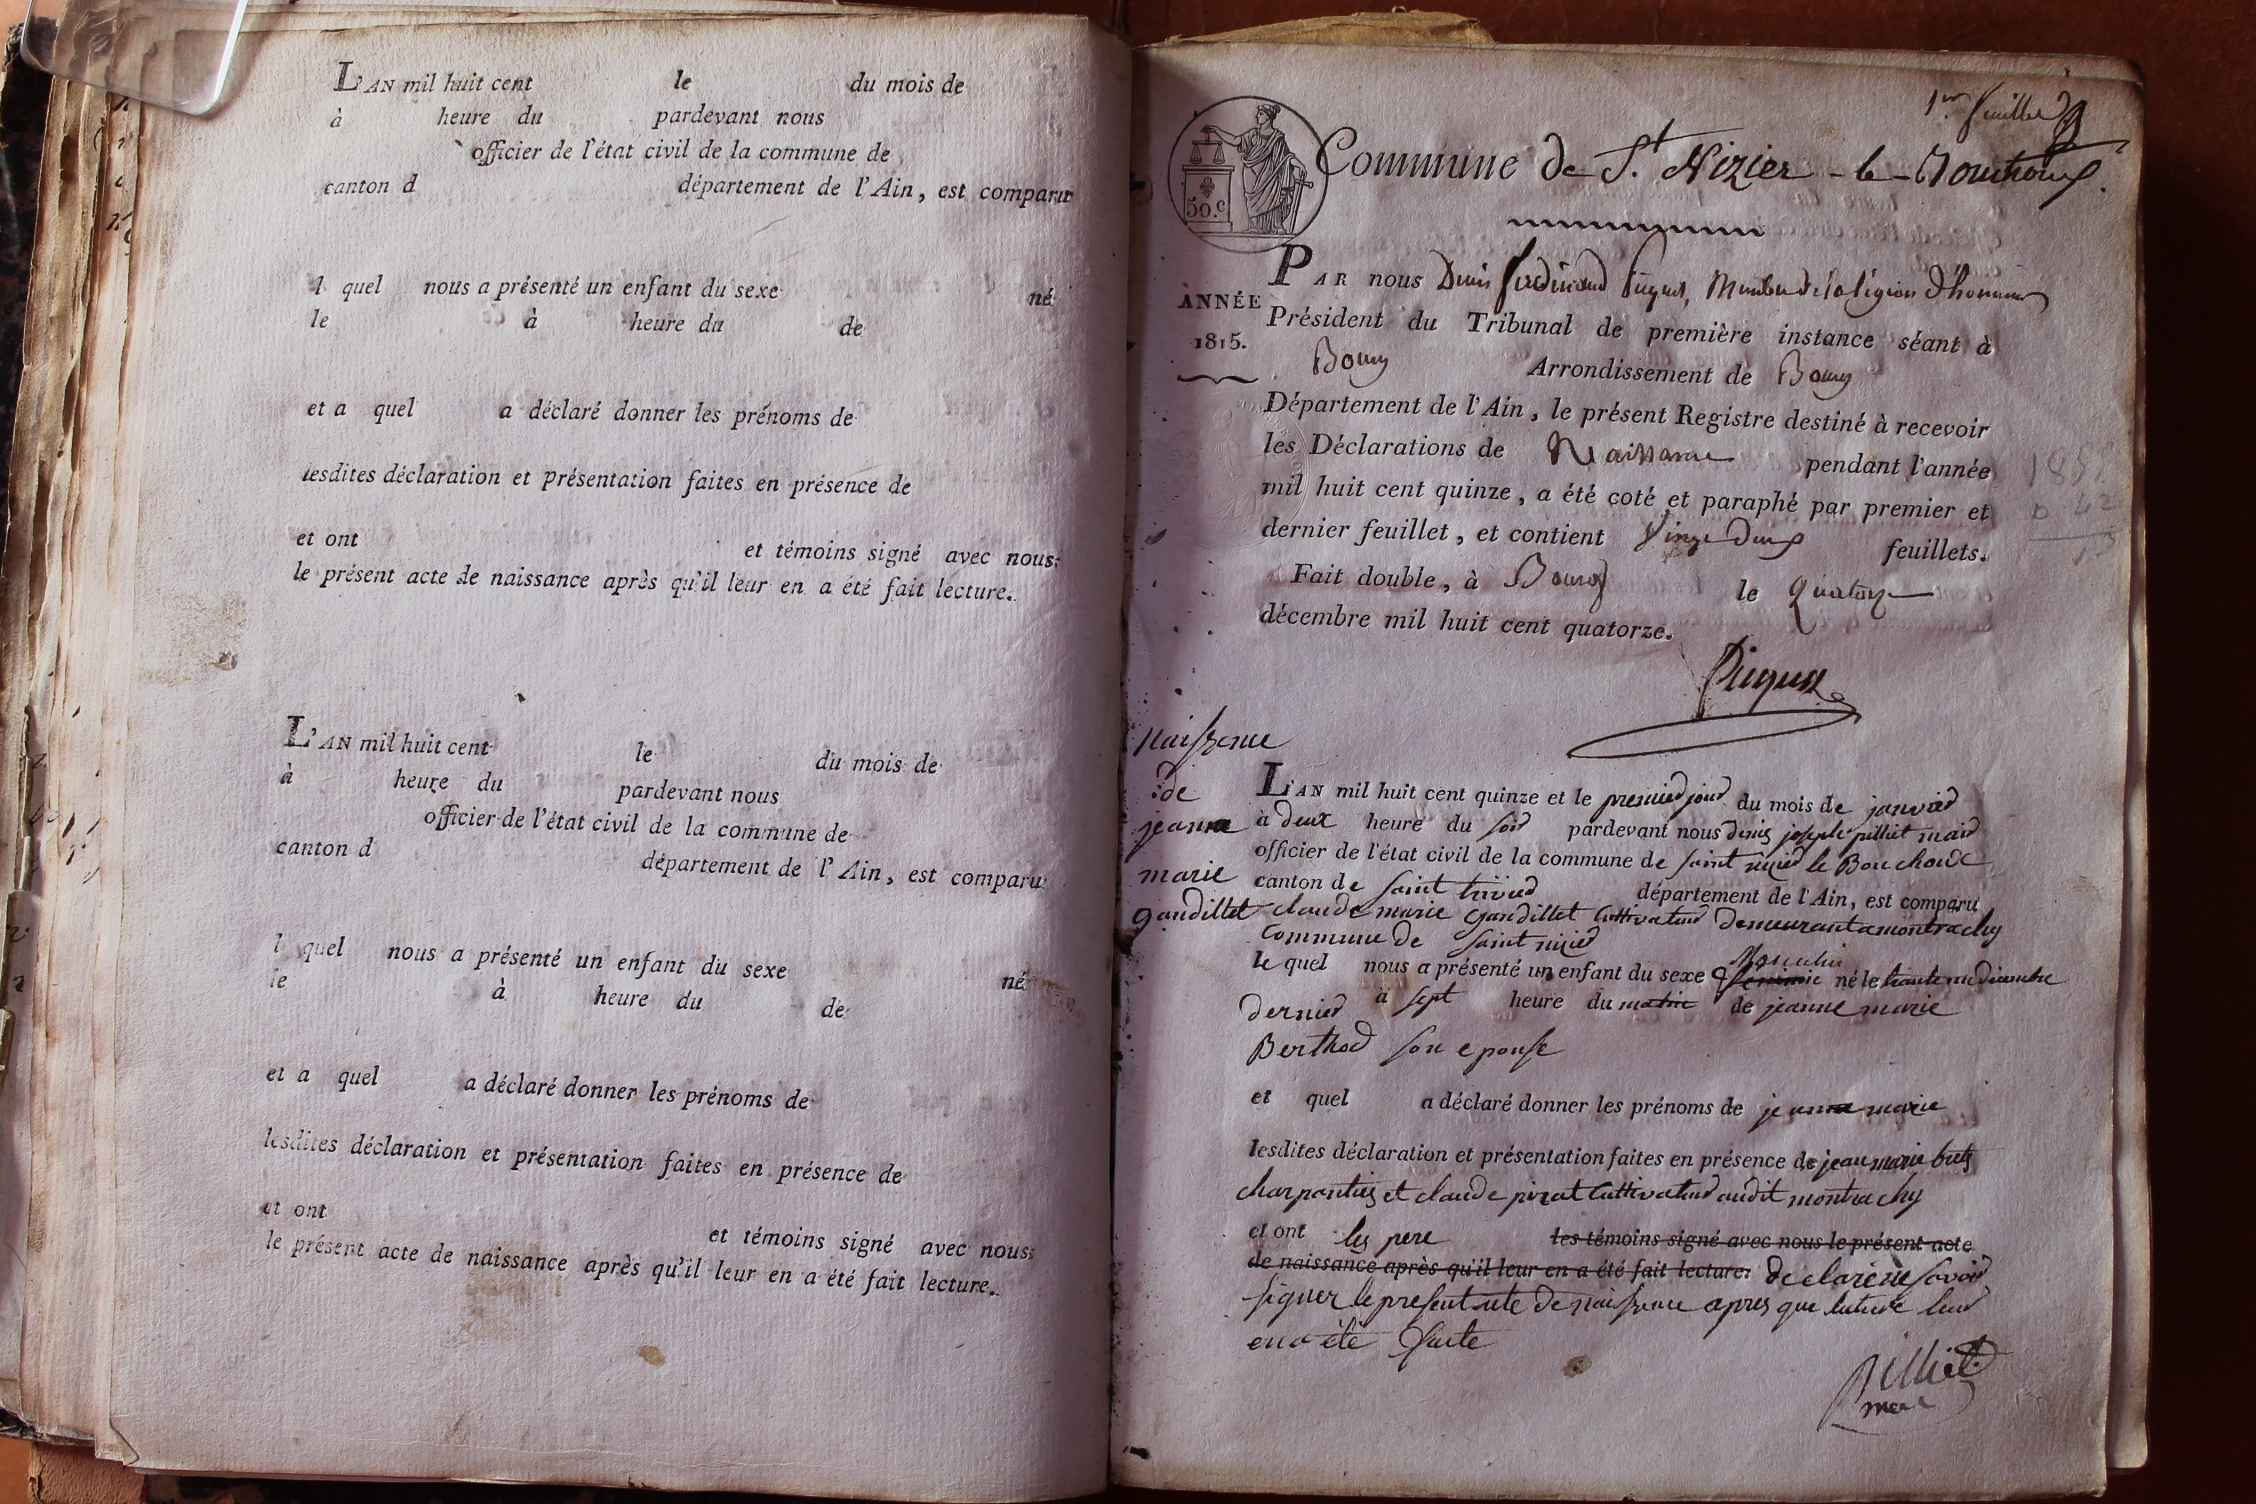 L'AN mil huit cent le du mois de
à heure du pardevant nous
officier de l'état civil de la commune de
canton d département de l'Ain, est comparu
l quel nous a présenté un enfant du sexe né
le à heure du de
et a quel a déclaré donner les prénoms de
lesdites déclaration et présentation faites en présence de
et ont et témoins signé avec nous
le présent acte de naissance après qu'il leur en a été fait lecture.
L'AN mil huit cent le du mois de
à heure du pardevant nous
officier de l'état civil de la commune de
canton d département de l'Ain, est comparu
l quel nous a présenté un enfant du sexe né
le à heure du de
et a quel a déclaré donner les prénoms de
lesdites déclaration et présentation faites en présence de
et ont et témoins signé avec nous
le présent acte de naissance après qu'il leur en a été fait lecture.
1er feuillet
50.c
Commune de St Nizier-le-Bouchoux.
ANNÉE
1815.
PAR nous Denis ferdinand Picquet, Membre de la légion d'honneur
Président du Tribunal de première instance séant à
Bourg Arrondissement de Bourg
Département de l'Ain, le présent Registre destiné à recevoir
les Déclarations de Naissance pendant l'année
mil huit cent quinze, a été coté et paraphé par premier et
dernier feuillet, et contient vingt deux feuillets.
Fait double, à Bourg le Quatorze
décembre mil huit cent quatorze.
Picquet
Naissance
de
jeanne
marie
gandillet
L'AN mil huit cent quinze et le premier jour du mois de janvier
à deux heure du soir pardevant nous denis joseph pilliet maire
officier de l'état civil de la commune de saint nizier le Bouchoux
canton de saint trivier département de l'Ain, est comparu
claude marie gandillet cultivateur demeurant a montrachy
commune de saint nizier
le quel nous a présenté un enfant du sexe feminin Masculin né le trente un decembre
dernier à sept heure du matin de jeanne marie
Berthod son epouse
et quel a déclaré donner les prénoms de jeanne marie
lesdites déclaration et présentation faites en présence de jean marie
charpentier et claude pirat cultivateur audit montrachy
et ont les pere les témoins signé avec nous le présent acte
de naissance après qu'il leur en a été fait lecture. declaré ne savoir
signer le present acte de naissance apres que lecture leur
en a été faite
Pilliet
maire